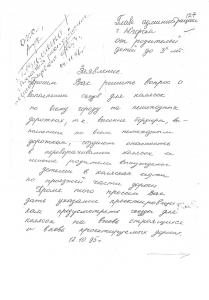 127
Главе администрации
г. Югорска
от родителей
детей до 3х лет.
Заявление.
Просим Вас решить вопрос о
съездов для колясок
по всему городу на пешеходных
дорожках, т.к. высокие бордюры, вы-
полненные по всем пешеходным
дорожкам, создают опасность
в переворачивании коляски и
многие родители вынуждены
с детьми в колясках идти
по проезжей части дороги
Кроме того просим Вас
дать указание проектировщи-
кам предусмотреть съезд для
колясок на вновь строящихся
и вновь проектируемых дорогах.
12.10.95г.